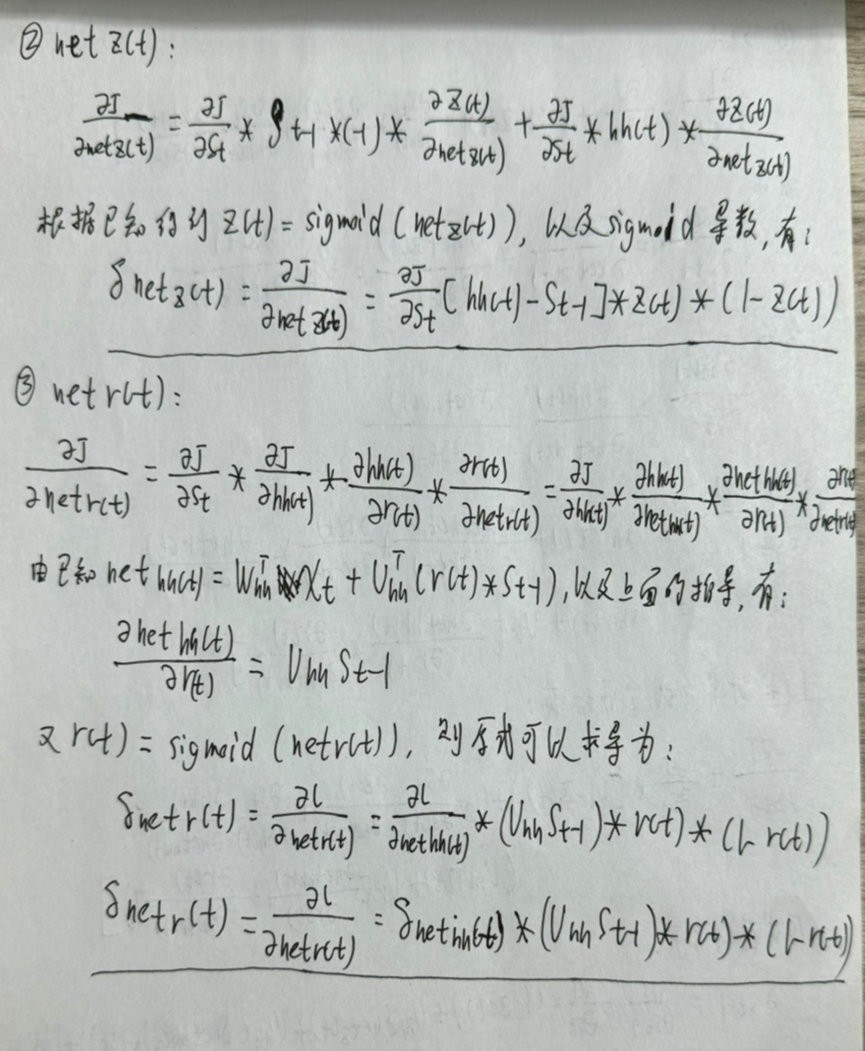 ② net z(t):
∂J/∂netz(t) = ∂J/∂St * St-1 *(-1) * ∂Z(t)/∂netz(t) + ∂J/∂St * hh(t) * ∂Z(t)/∂netz(t)
根据已知得到 Z(t) = sigmoid (netz(t)), 以及sigmoid 导数, 有:
δnetz(t) = ∂J/∂netz(t) = ∂J/∂St [hh(t) - St-1] * Z(t) * (1- Z(t))
③ net r(t):
∂J/∂netr(t) = ∂J/∂St * ∂J/∂hh(t) * ∂hh(t)/∂r(t) * ∂r(t)/∂netr(t) = ∂J/∂hh(t) * ∂hh(t)/∂nethh(t) * ∂nethh(t)/∂r(t) * ∂r(t)/∂netr(t)
由已知 net hh(t) = Whh^T Xt + Uhh^T (r(t) * St-1), 以及上面的推导, 有:
∂net hh(t)/∂r(t) = Uhh St-1
又 r(t) = sigmoid (netr(t)), 则原式可以求导为:
δnetr(t) = ∂l/∂netr(t) = ∂l/∂nethh(t) * (Uhh St-1) * r(t) * (1- r(t))
δnetr(t) = ∂l/∂netr(t) = δnethh(t) * (Uhh St-1) * r(t) * (1- r(t))